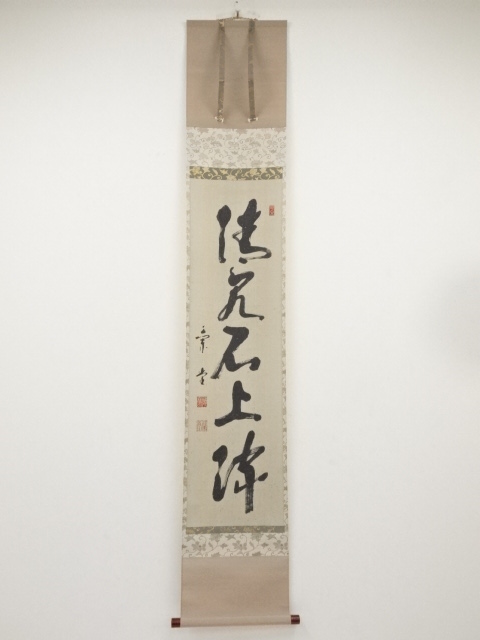 清泉石上流